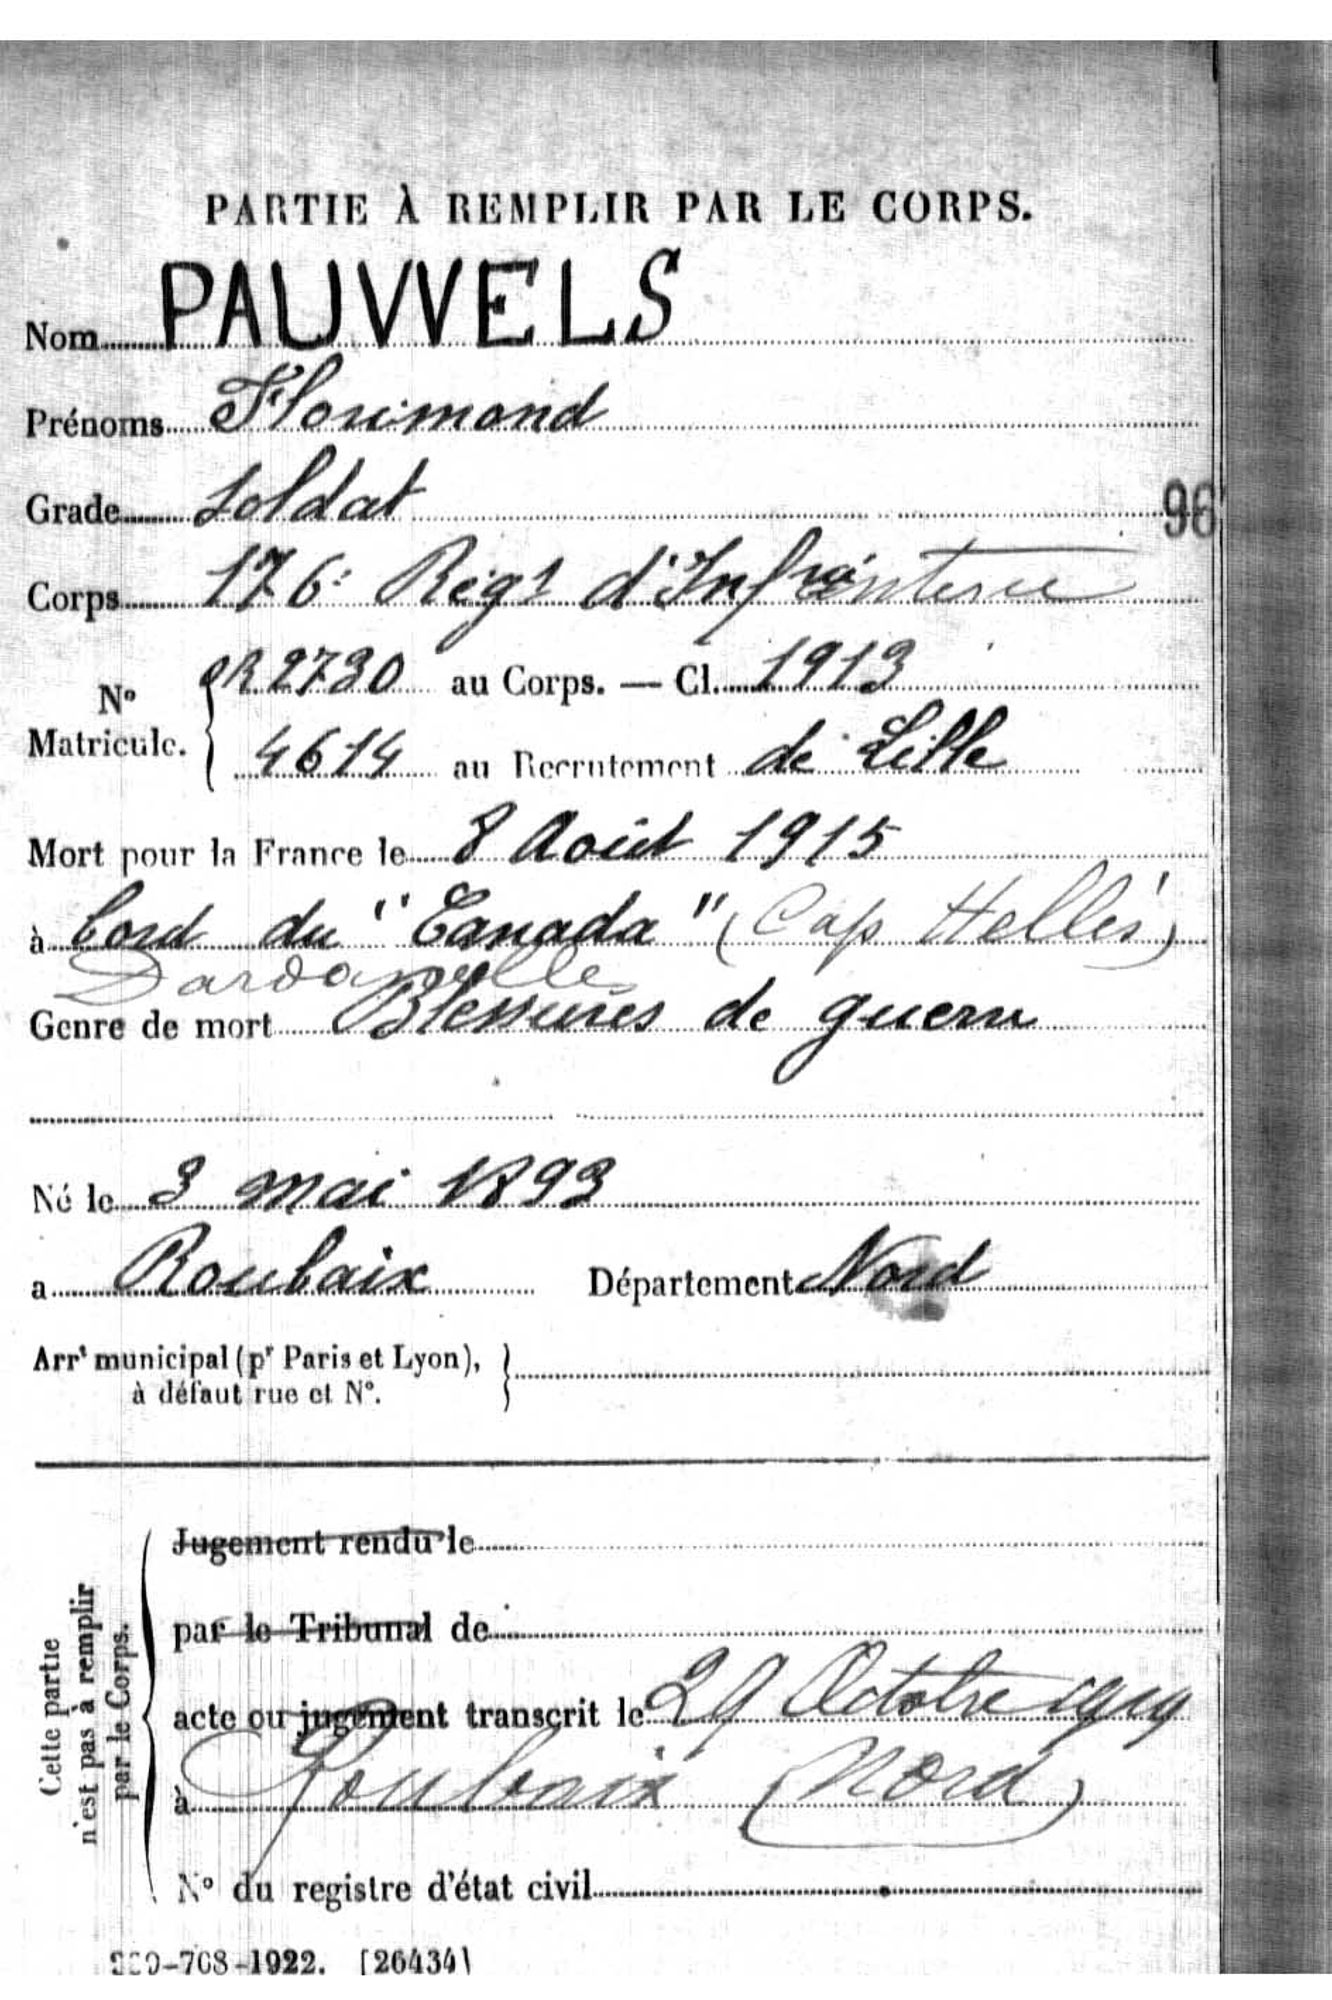 PARTIE À REMPLIR PAR LE CORPS.
Nom PAUWELS
Prénoms Florimond
Grade Soldat
96
Corps 176e Régt d'Infanterie
No Matricule. 2730 au Corps. — Cl. 1913
4614 au Recrutement de Lille
Mort pour la France le 8 Août 1915
à bord du "Canada" (Cap Hellès)
Dardanelles
Genre de mort Blessures de guerre
Né le 3 mai 1893
a Roubaix Département Nord
Arrt municipal (pr Paris et Lyon),
à défaut rue et No.
Cette partie
n'est pas à remplir
par le Corps.
Jugement rendu le
par le Tribunal de
acte ou jugement transcrit le 29 Octobre 1919
à Roubaix (Nord)
No du registre d'état civil
-708-1922. [26434]